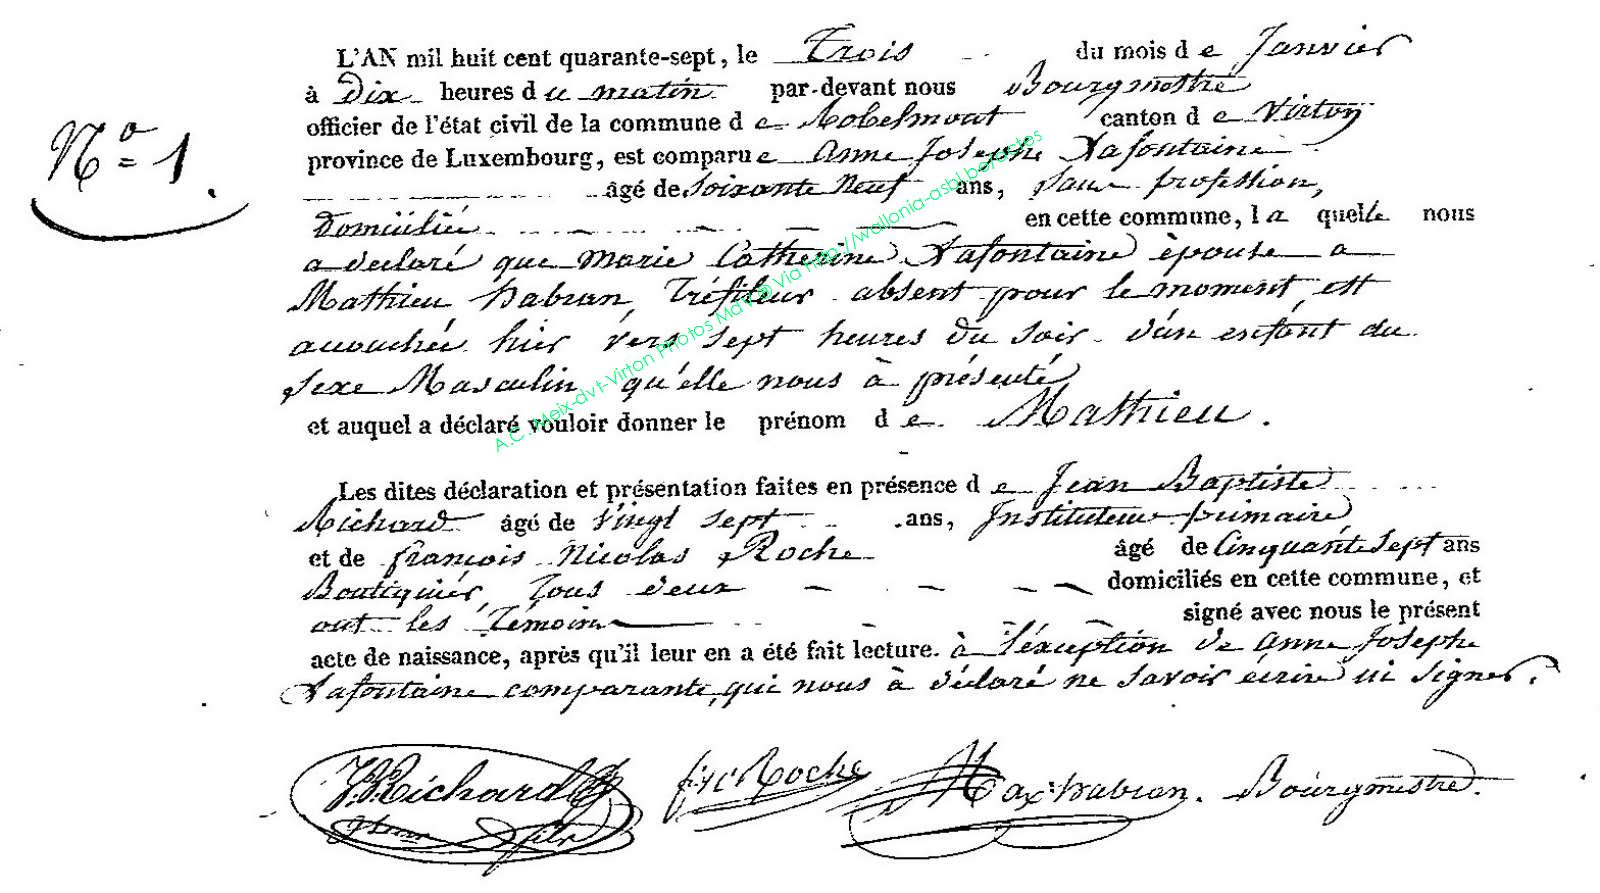 L'AN mil huit cent quarante-sept, le Trois du mois de Janvier
à Dix heures du matin par-devant nous Bourgmestre
officier de l'état civil de la commune de Robelmont canton de Virton
N° 1.
province de Luxembourg, est comparue Anne Josephe Lafontaine
âgé de soixante Neuf ans, sans profession,
Domiciliée en cette commune, laquelle nous
a déclaré que Marie Catherine Lafontaine épouse a
Mathieu habran, Tréfileur absent pour le moment, est
accouchée hier vers sept heures du soir d'un enfant du
sexe Masculin qu'elle nous à présenté
et auquel a déclaré vouloir donner le prénom de Mathieu.
A.C. Meix-dvt-Virton Photos MdV @ Via http://wallonia-asbl.be/
Les dites déclaration et présentation faites en présence de Jean Baptiste
Richard âgé de Vingt sept ans, Instituteur primaire
et de françois Nicolas Roche âgé de Cinquante Sept ans
Boutiquier, Tous deux domiciliés en cette commune, et
ont les Témoins signé avec nous le présent
acte de naissance, après qu'il leur en a été fait lecture. à l'éxception de Anne Josephe
Lafontaine comparante, qui nous à déclaré ne savoir écrire ni signer.
Richard Roche habran. Bourgmestre.